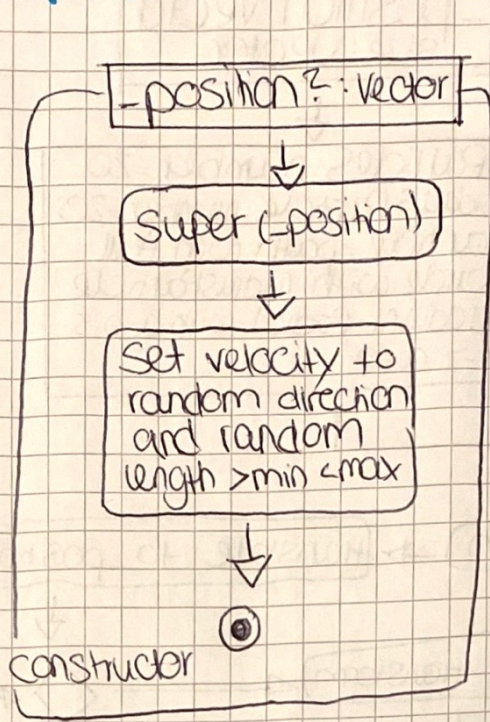 _position? : vector
super (_position)
set velocity to
random direction
and random
length >min <max
constructor